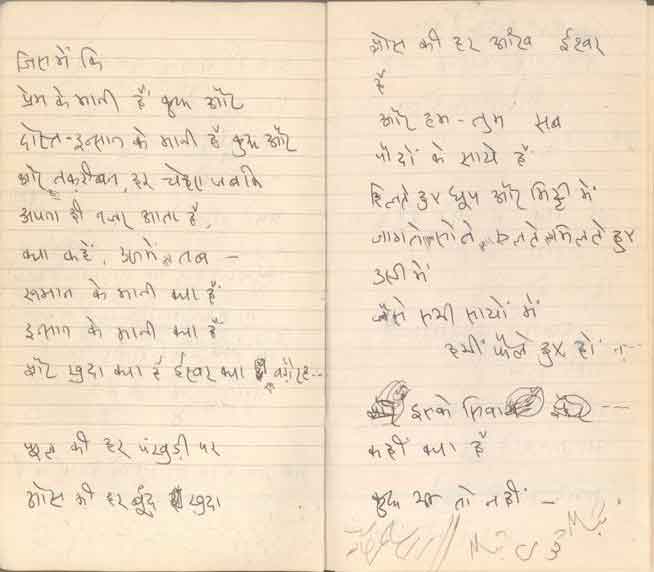 जिसमें कि
प्रेम के मानी हैं कुछ और
दोस्त-इन्सान के मानी हैं कुछ और
और तक़रीबन, हर चेहरा जबकि
अपना ही नज़र आता है,
क्या कहें, उसमें तब —
समाज के मानी क्या हैं
इन्सान के मानी क्या हैं
और ख़ुदा क्या है ईश्वर क्या है वग़ैरह...
फूल की हर पंखुड़ी पर
ओस की हर बूँद ख़ुदा
ओस की हर आँख ईश्वर
है
और हम-तुम सब
पौदों के साये हैं
हिलते हुए धूप और मिट्टी में
जागते सोते मिलते हुए
उसी में
जैसे सभी सायों में
हमीं फैले हुए हों ...
इसके सिवाय ---
कहीं क्या है
कुछ तो नहीं —